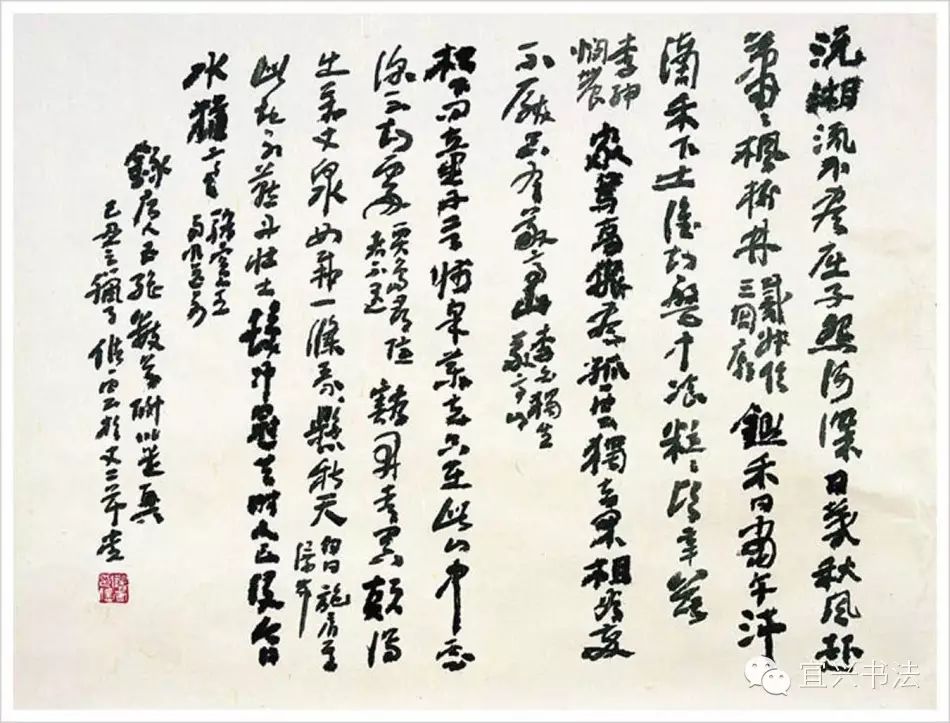 沅湘流不盡屈子怨何深日暮秋風起
蕭〻楓樹林 戴叔倫三閭廟 鋤禾日當午汗
滴禾下土誰知盤中飧粒〻皆辛苦
李紳憫農 眾鳥高飛盡孤雲獨去閑相看兩
不厭只有敬亭山 李白獨坐敬亭山
松下問童子言師採藥去只在此山中雲
深不知處 賈島尋隱者不遇 豁開青冥顛瀉
出萬丈泉如裁一條素懸秋天 白日 施肩吾瀑布
此地别燕丹壯士髮衝冠昔時人已沒今日
水猶寒 駱賓王易水送別
錄唐人五絕數首聊以遣興
己丑之臘 於丈二草堂
宜兴书法